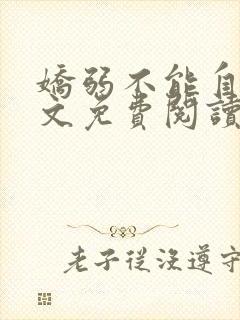 嬌弱不能自
文免費閱讀
老子從沒遵守